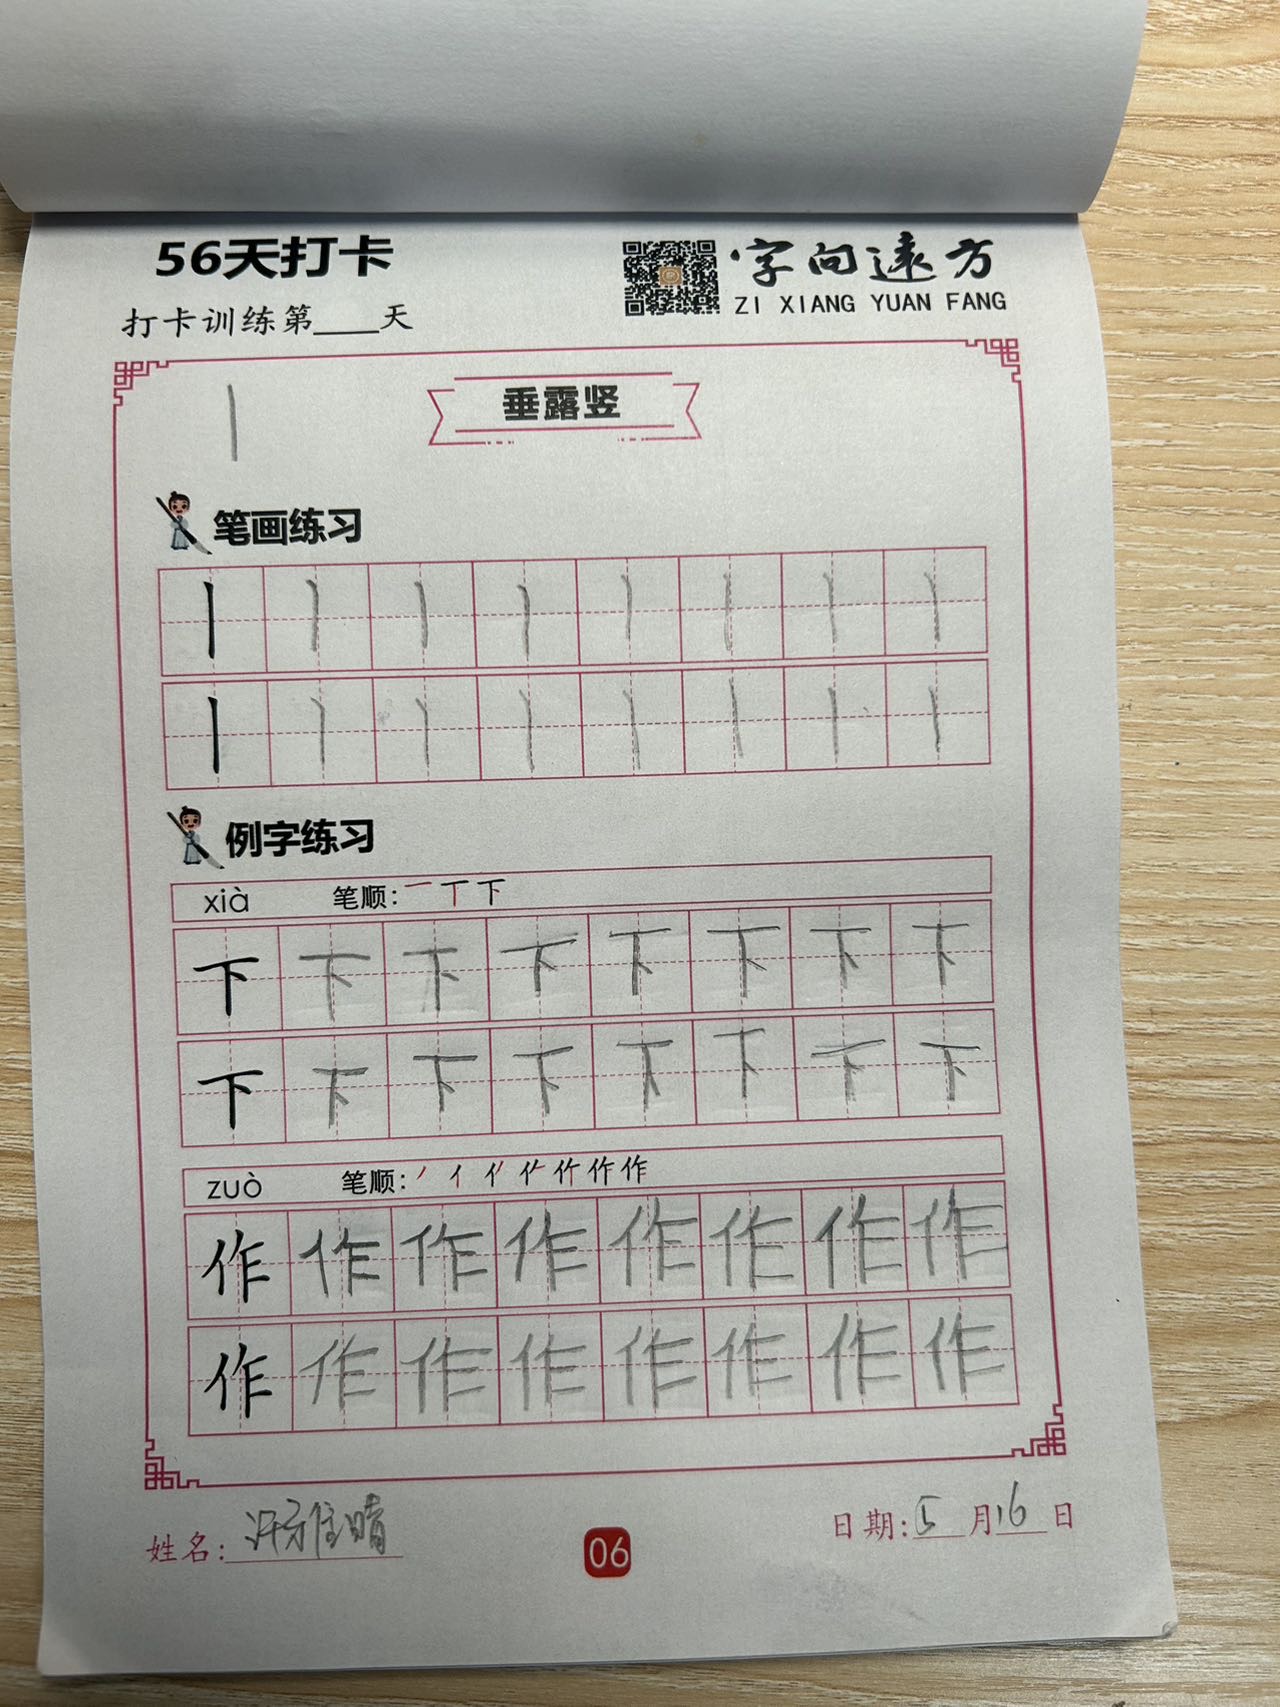 56天打卡
字向远方
ZI XIANG YUAN FANG
打卡训练第___天
垂露竖
笔画练习
丨 丨 丨 丨 丨 丨 丨 丨
丨 丨 丨 丨 丨 丨 丨 丨
例字练习
xià 笔顺: 一 丅 下
下 下 下 下 下 下 下 下
下 下 下 下 下 下 下 下
zuò 笔顺: 作
作 作 作 作 作 作 作 作
作 作 作 作 作 作 作 作
姓名: 雅晴
日期: 5 月 16 日
06